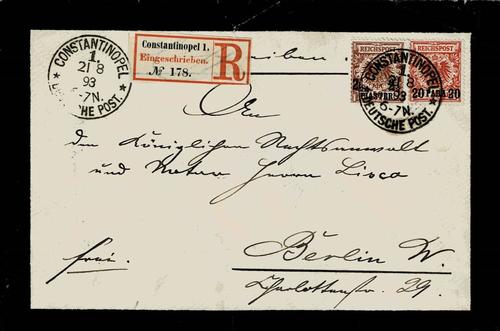 CONSTANTINOPEL
1.
21 8
93
6-7N.
DEUTSCHE POST.
Constantinopel 1.
Eingeschrieben.
№ 178.
R
REICHSPOST
REICHSPOST
PIASTER
20 PARA 20
CONSTANTINOPEL
1.
21 8
93
6-7N.
DEUTSCHE POST.
An
den Königlichen Rechtsanwalt
und Notar Herrn Lisco
frei.
Berlin W.
Charlottenstr. 29.